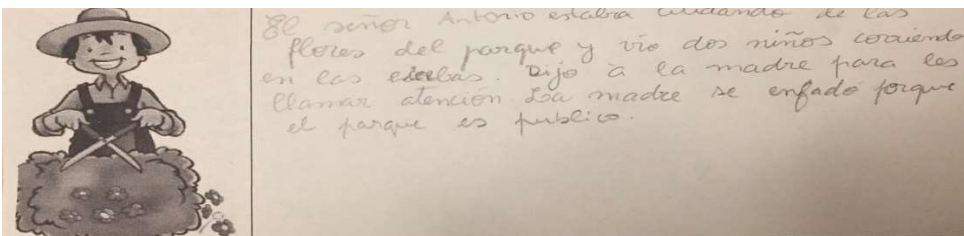 El señor Antonio estaba cuidando de las
flores del parque y vio dos niños corriendo
en las . Dijo à la madre para les
llamar atención La madre se enfadó porque
el parque es publico.